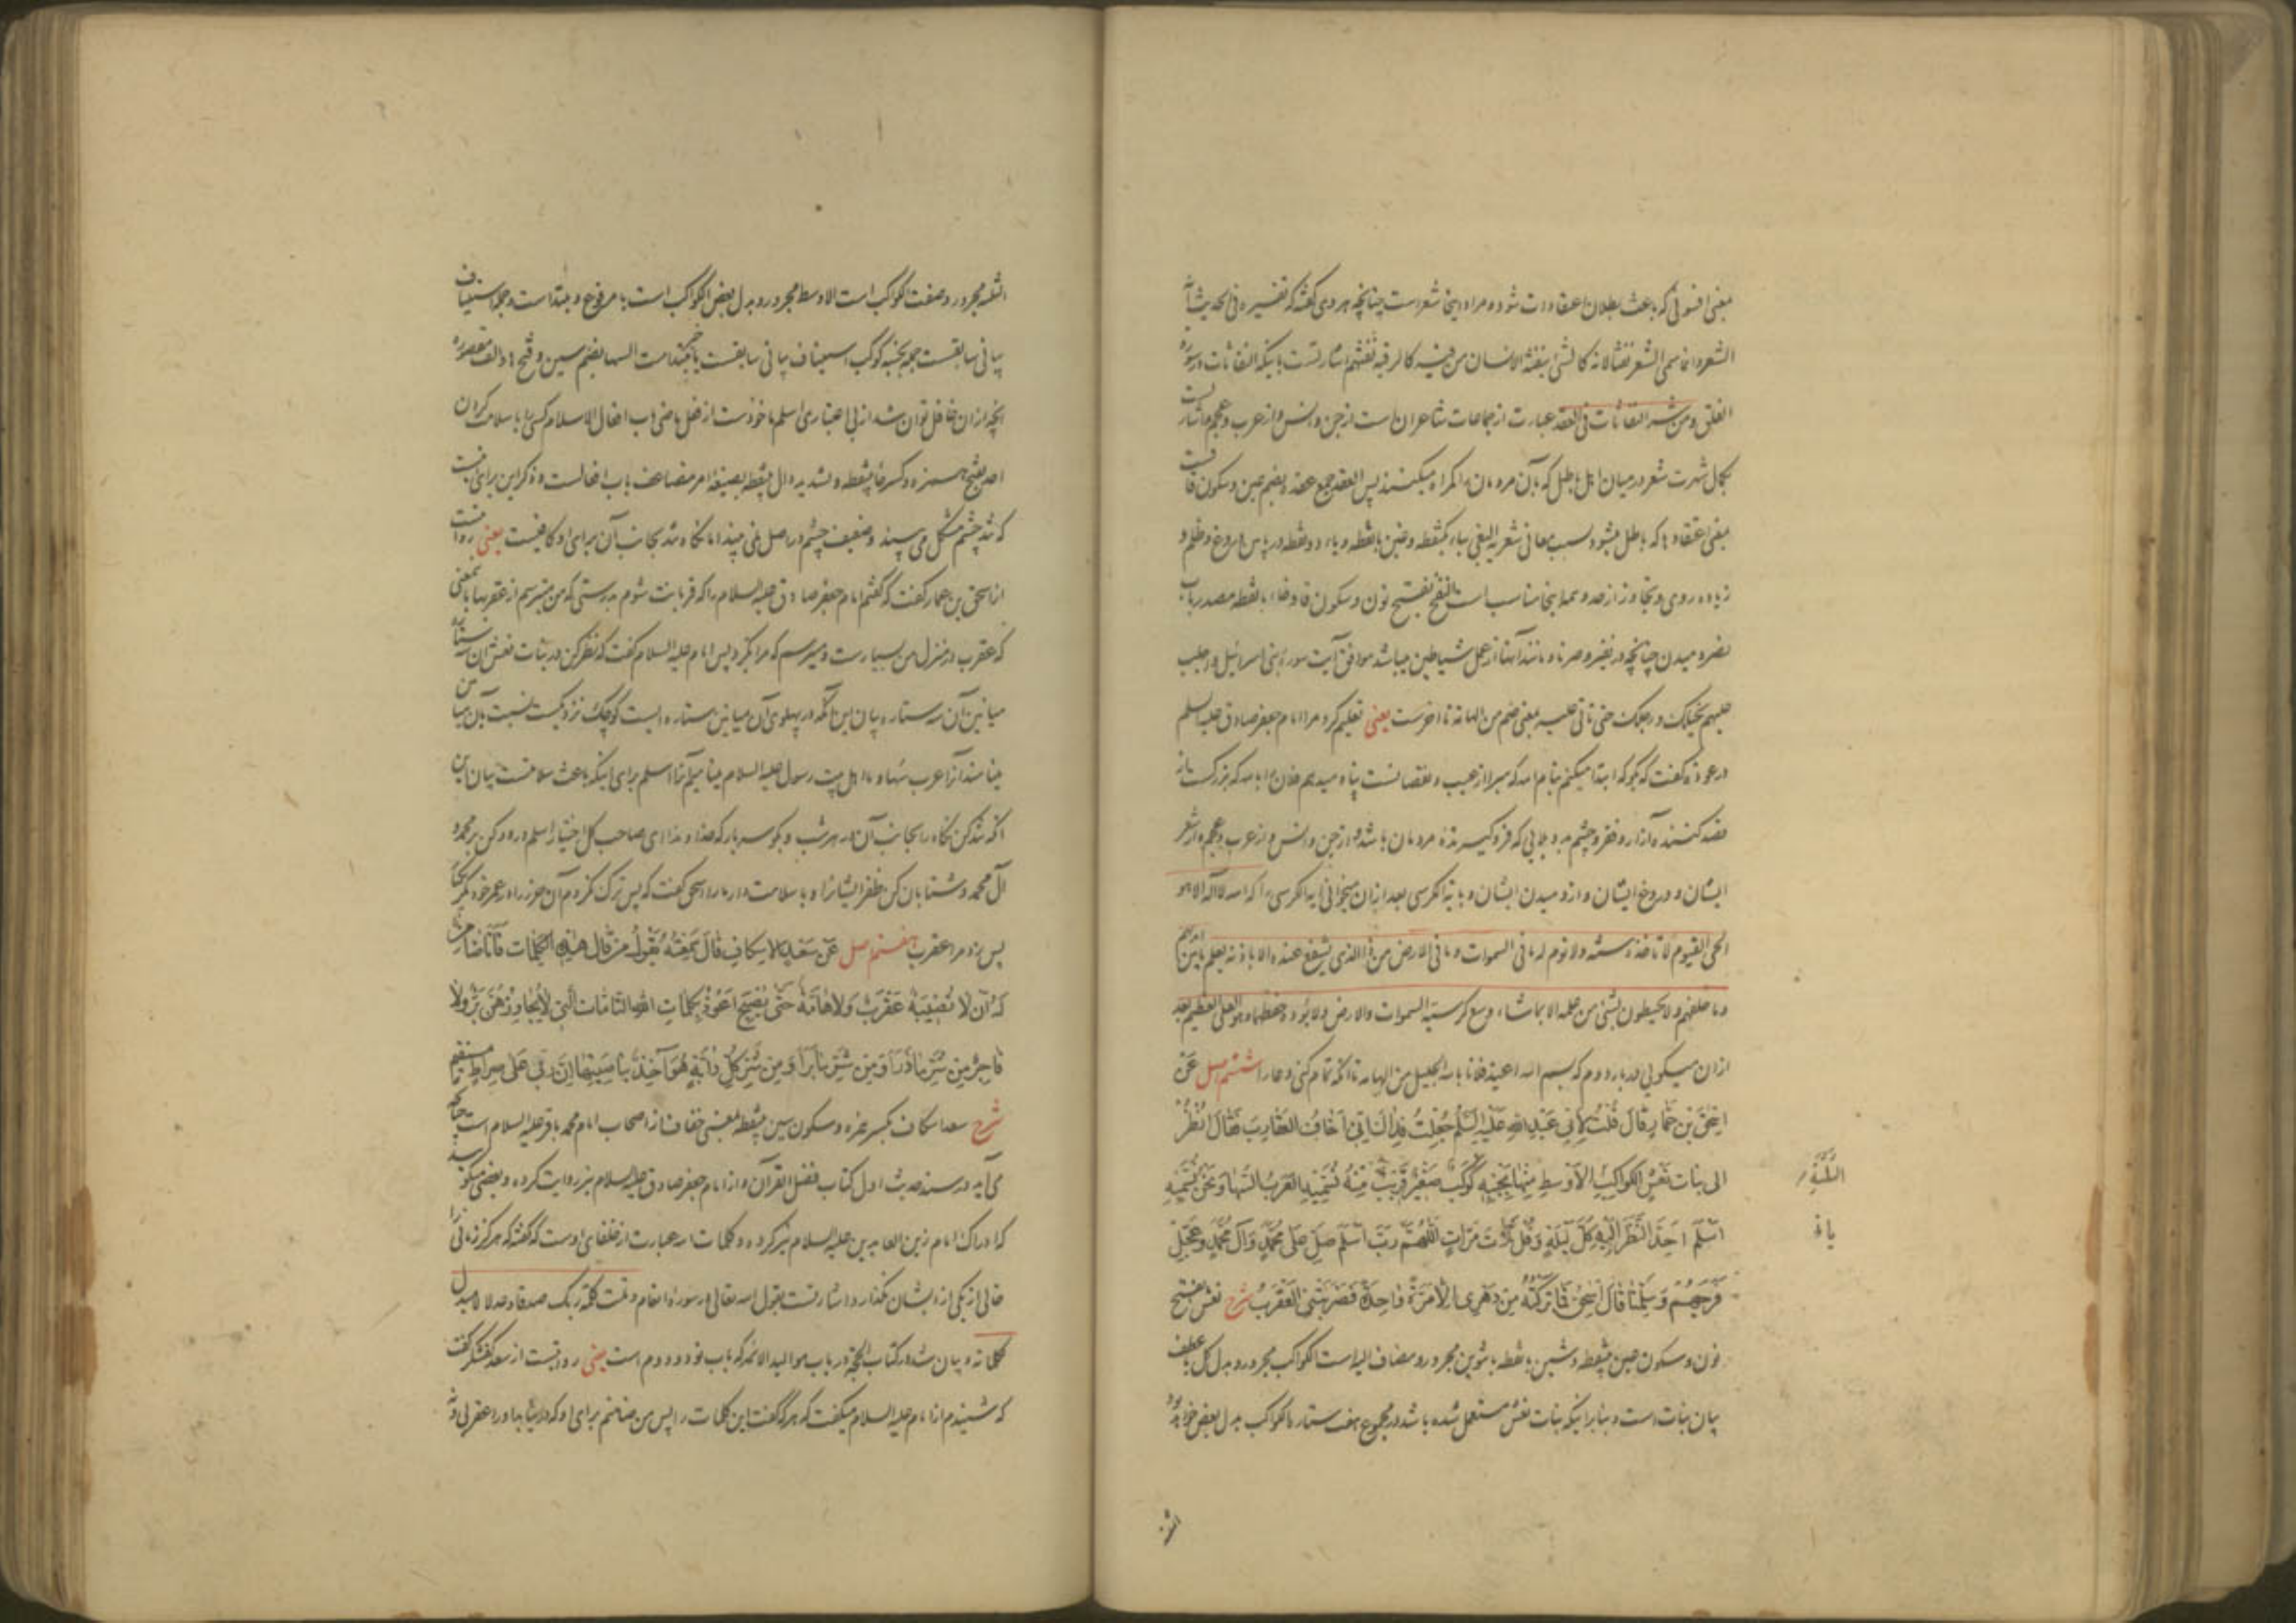 بمعنی افسونی که باعث بطلان اعتقادات شود و مراد اینجا شعر است چنانچه هروی گفته که تفسیره فی الحدیث انه
الشعر و انما سمی الشعر نفثا لانه کالشی ینفثه الانسان من فیه کالرقیه نفثهم اشارتست باینکه النفاثات در سوره
الفلق و من شر النفاثات فی العقد عبارت از جماعات شاعران است از جن و انس و از عرب و عجم و اشارتست
بکمال شهرت شعر در میان اهل باطل که بآن مردمان را گمراه میکنند پس العقد جمع عقده بضم عین و سکون قافست
بمعنی اعتقادها که باطل میشود بسبب معانی شعریه البغی بباء یکنقطه و غین با نقطه و یاء دو نقطه در پایین دروغ و ظلم و
زیاده روی و تجاوز از حد و همه اینجا مناسب است النفخ بفتح نون و سکون فا و خاء با نقطه مصدر باب
نصر دمیدن چنانچه در نفیر و صرنا و مانند آنها از عمل شیاطین میباشد موافق آیت سوره بنی اسرائیل و اجلب
علیهم بخیلک و رجلک حتی تاتی علیه بمعنی ضم من الهامة تا آخرست یعنی تعلیم کرد مرا امام جعفر صادق علیه السلم
در عوذه گفت که بگو که ابتدا میکنم بنام الله که مبرا از عیب و نقصانست پناه میدهم فلان را بالله که بزرگست از
قصد کننده آزار و فقر و چشم بد و بلایی که فرو گیرنده مردمان باشد و از جن و انس و از عرب و عجم و از شعر
ایشان و دروغ ایشان و از دمیدن ایشان و بآیة الکرسی بعد از آن میخوانی آیة الکرسی را که الله لا اله الا هو
الحی القیوم لا تاخذه سنة و لا نوم له ما فی السموات و ما فی الارض من ذا الذی یشفع عنده الا باذنه یعلم ما بین ایدیهم
و ما خلفهم و لا یحیطون بشئ من علمه الا بما شاء وسع کرسیه السموات و الارض و لا یؤده حفظهما و هو العلی العظیم بعد
از آن میگویی در بار دوم که بسم الله اعیذ فلانا بالله الجلیل من الهامه تا آنکه تمام کنی دعا را ششم اصل عَنْ
اِسْحٰقَ بْنِ عَمّارٍ قالَ قُلْتُ لِاَبی عَبْدِ اللهِ عَلَیْهِ السَّلٰمُ جُعِلْتُ فِداکَ اِنّی اَخافُ العَقارِبَ فَقالَ اُنْظُرْ
الی بَناتِ نَعْشٍ الکَواکِبِ الاَوْسَطِ مِنْها بِجَنْبِهِ کَوْکَبٌ صَغیرٌ قَریبٌ مِنْهُ تُسَمّیهِ العَرَبُ السُّها وَنَحْنُ نُسَمّیهِ
الثَّلٰثَةِ
اَسْلَمَ اَحِدَّ النَّظَرَ اِلَیْهِ کُلَّ لَیْلَةٍ وَقُلْ ثَلاثَ مَرّاتٍ اَللّٰهُمَّ رَبَّ اَسْلَمَ صَلِّ عَلی مُحَمَّدٍ وَآلِ مُحَمَّدٍ وَعَجِّلْ
فَرَجَهُمْ وَسَلِّمْنا قالَ اِسْحٰقُ فَما تَرَکْتُهُ مِنْ دَهْری اِلّا مَرَّةً واحِدَةً فَضَرَبَتْنی العَقْرَبُ شرح نعش بفتح
نون و سکون عین بینقطه و شین با نقطه با تنوین مجرور و مضاف الیه است الکواکب مجرور و بدل کل یا عطف
بیان بنات است و بنابر اینکه بنات نعش مستعمل شده باشد در مجموع هفت ستاره الکواکب بدل بعض خواهد بود
الثلثه مجرور و صفت کواکب است الاوسط مجرور و بدل بعض الکواکب است یا مرفوع و مبتداست و جمله استیناف
بیانی سابقست جمله بجنبه کوکب استیناف بیانی سابقست یا خبر مبتداست السها بضم سین و فتح ها و الف مقصوره
آنچه از آن غافل توان شد از بی اعتباری اسلم ماخوذست از فعل ماضی باب افعال الاسلام کسی را با سلامت کردن
احد بفتح همزه و کسر حاء بینقطه و تشدید دال بینقطه بصیغه امر مضاعف باب افعالست و ذکر این برای آنست
که تند چشم مشکل می بیند و ضعیف چشم در اصل نمی بیند اما نگاه تند بجانب آن برای او کافیست یعنی روایتست
از اسحق بن عمار گفت که گفتم امام جعفر صادق علیه السلام را که قربانت شوم بدرستی که من میترسم از عقربها بمعنی
که عقرب در منزل من بسیارست و میترسم که مرا بگزد پس امام علیه السلام گفت که نظر کن در بنات نعش آن سه ستاره
میانین آن سه ستاره بیان این آنکه در پهلوی آن میانین ستاره ایست کوچک نزدیکست نسبت بآن میانین
مینامند آنرا عرب سُها و ما اهل بیت رسول علیه السلام مینامیم آنرا اسلم برای اینکه باعث سلامتست بیان این
آنکه تند کن نگاه را بجانب آن در هر شب و بگو سه بار که خداوندا ای صاحب کل اختیار اسلم درود کن بر محمد و
آل محمد و شتابان کن ظفر ایشانرا و با سلامت دار ما را اسحق گفت که پس ترک نکردم آن حرز را در عمر خود مگر یکبار
پس زد مرا عقرب هفتم اصل عَنْ سَعْدٍ الاِسْکافِ قالَ سَمِعْتُهُ یَقُولُ مَنْ قالَ هٰذِهِ الکَلِماتِ فَاَنَا ضامِنٌ
لَهُ اَنْ لا تُصیبَهُ عَقْرَبٌ وَلا هامَّةٌ حَتّی یُصْبِحَ اَعُوذُ بِکَلِماتِ اللهِ التّامّاتِ الَّتی لا یُجاوِزُهُنَّ بَرٌّ وَلا
فاجِرٌ مِنْ شَرِّ ما ذَرَأَ وَمِنْ شَرِّ ما بَرَأَ وَمِنْ شَرِّ کُلِّ دابَّةٍ هُوَ آخِذٌ بِناصِیَتِها اِنَّ رَبّی عَلی صِراطٍ مُسْتَقیمٍ
شرح سعد اسکاف بکسر همزه و سکون سین بینقطه بمعنی خفاف از اصحاب امام محمد باقر علیه السلام است چنانچه
می آید در سند حدیث اول کتاب فضل القرآن و از امام جعفر صادق علیه السلام نیز روایت کرده و بعضی میگویند
که ادراک امام زین العابدین علیه السلام نیز کرده و کلمات الله عبارت از خلفای اوست که گفته که هرگز زمانی را
خالی از یکی از ایشان نگذارد و اشارتست بقول الله تعالی در سوره انعام و تمت کلمة ربک صدقا و عدلا لا مبدل
لکلماته و بیان شد در کتاب الحجة در باب موالید الائمه که باب نود و دوم است یعنی روایتست از سعد کفشگر گفت
که شنیدم از امام علیه السلام میگفت که هر که گفت این کلمات را پس من ضامنم برای او که در نیابد او را عقربی و نه